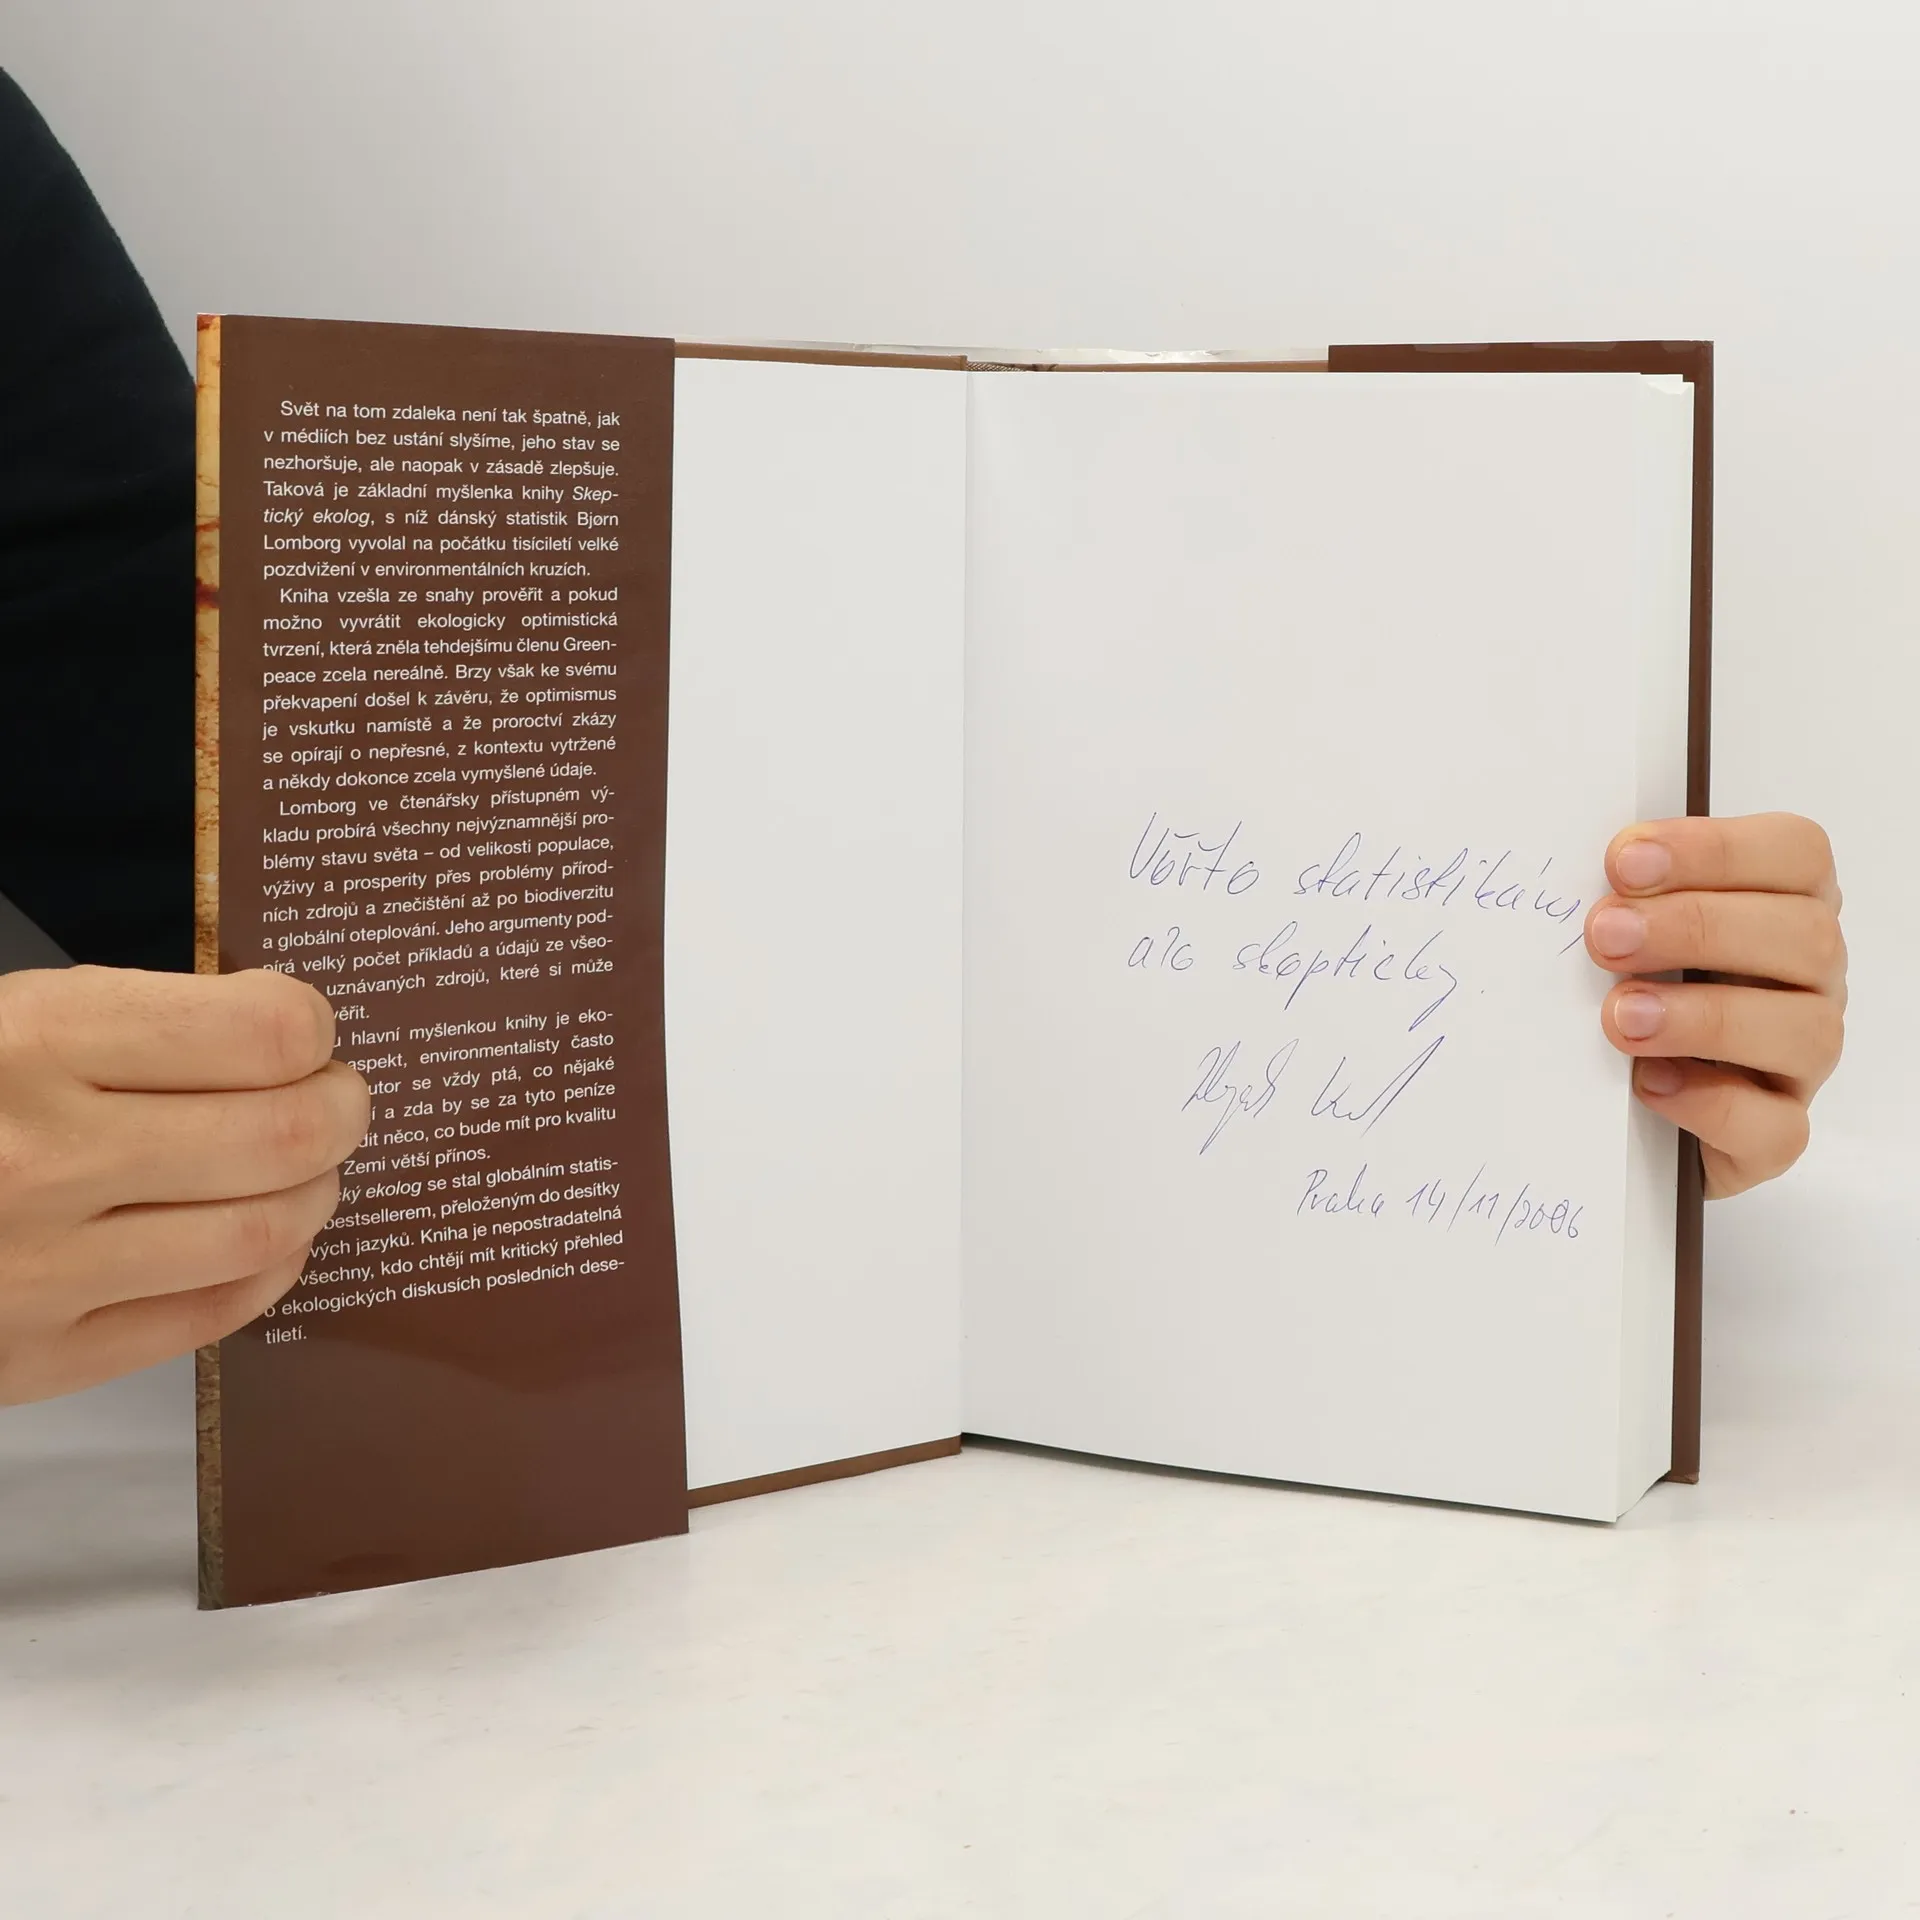 Svět na tom zdaleka není tak špatně, jak
v médiích bez ustání slyšíme, jeho stav se
nezhoršuje, ale naopak v zásadě zlepšuje.
Taková je základní myšlenka knihy Skep-
tický ekolog, s níž dánský statistik Bjørn
Lomborg vyvolal na počátku tisíciletí velké
pozdvižení v environmentálních kruzích.
Kniha vzešla ze snahy prověřit a pokud
možno vyvrátit ekologicky optimistická
tvrzení, která zněla tehdejšímu členu Green-
peace zcela nereálně. Brzy však ke svému
překvapení došel k závěru, že optimismus
je vskutku namístě a že proroctví zkázy
se opírají o nepřesné, z kontextu vytržené
a někdy dokonce zcela vymyšlené údaje.
Lomborg ve čtenářsky přístupném vý-
kladu probírá všechny nejvýznamnější pro-
blémy stavu světa – od velikosti populace,
výživy a prosperity přes problémy přírod-
ních zdrojů a znečištění až po biodiverzitu
a globální oteplování. Jeho argumenty pod-
pírá velký počet příkladů a údajů ze všeo-
uznávaných zdrojů, které si může
věřit.
hlavní myšlenkou knihy je eko-
aspekt, environmentalisty často
utor se vždy ptá, co nějaké
a zda by se za tyto peníze
dit něco, co bude mít pro kvalitu
Zemi větší přínos.
ký ekolog se stal globálním statis-
bestsellerem, přeloženým do desítky
vých jazyků. Kniha je nepostradatelná
všechny, kdo chtějí mít kritický přehled
o ekologických diskusích posledních dese-
tiletí.
Věřte statistikám,
ale skepticky.
Praha 14/11/2006